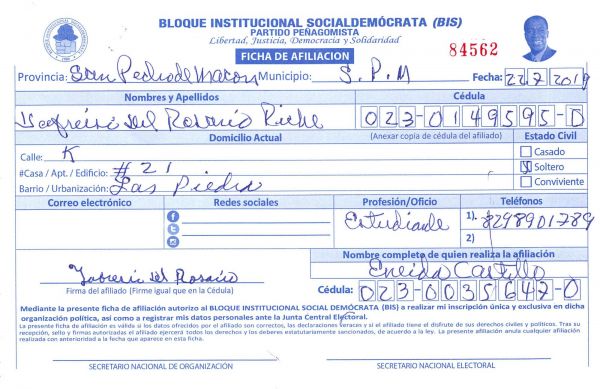 BLOQUE INSTITUCIONAL SOCIALDEMÓCRATA (BIS)
PARTIDO PEÑAGOMISTA
Libertad, Justicia, Democracia y Solidaridad
FICHA DE AFILIACION
84562
Provincia: San Pedro de Macoris Municipio: S. P. M Fecha: 22 7 2019
Nombres y Apellidos Cédula
del Rosario 023-0149595-0
Domicilio Actual (Anexar copia de cédula del afiliado) Estado Civil
Calle: K Casado
#Casa / Apt. / Edificio: #21 Soltero
Barrio / Urbanización: Las Piedra Conviviente
Correo electrónico Redes sociales Profesión/Oficio Teléfonos
Estudiante 1). 8298901789
2)
Nombre completo de quien realiza la afiliación
Eneida Castillo
del Rosario
Firma del afiliado (Firme igual que en la Cédula) Cédula: 023-0035647-0
Mediante la presente ficha de afiliación autorizo al BLOQUE INSTITUCIONAL SOCIAL DEMÓCRATA (BIS) a realizar mi inscripción única y exclusiva en dicha
organización política, así como a registrar mis datos personales ante la Junta Central Electoral.
La presente ficha de afiliación es válida si los datos ofrecidos por el afiliado son correctos, las declaraciones veraces y si el afiliado tiene el disfrute de sus derechos civiles y políticos. Tras su
recepción, sello y firmas autorizadas el afiliado ejercerá todos los derechos y los deberes estatutariamente sancionados, de acuerdo a la ley. La presente afiliación anula cualquier afiliación
realizada con anterioridad a la fecha que aparece en esta ficha.
SECRETARIO NACIONAL DE ORGANIZACIÓN SECRETARIO NACIONAL ELECTORAL